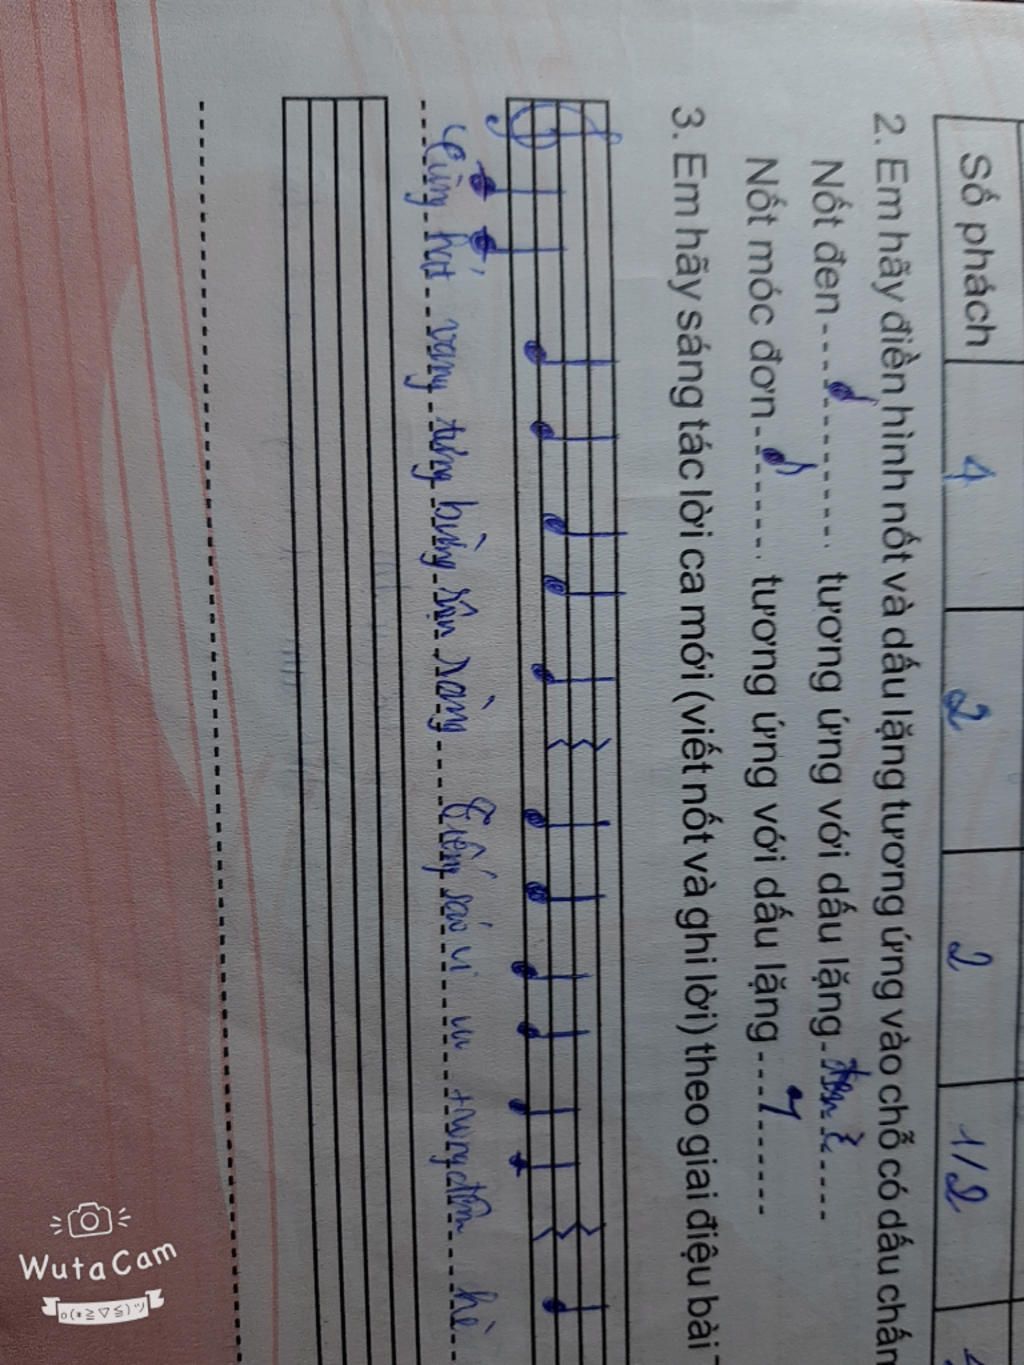 Số phách 4 2 2 1/2
2. Em hãy điền hình nốt và dấu lặng tương ứng vào chỗ có dấu chấm
Nốt đen tương ứng với dấu lặng đen
Nốt móc đơn tương ứng với dấu lặng
3. Em hãy sáng tác lời ca mới (viết nốt và ghi lời) theo giai điệu bài
Cùng hát vang tưng bừng rộn ràng Tiếng sáo vi vu trong đêm hè
WutaCam